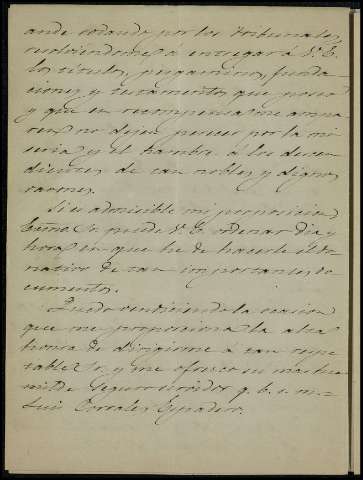 ande rodando por los tribunales,
resolviéndome á entregar á V. E.
los títulos, pergaminos, funda-
ciones y testamentos que poseo
y que en recompensa me ampa-
ren no dejen perecer por la mi-
seria y el hambre á los descen-
dientes de tan nobles y dignos
varones.
Si es admisible mi proposicion,
Exmo Sr. puede V. E. ordenar dia y
hora en que he de hacerle el do-
nativo de tan importantes do-
cumentos.
Quedo bendiciendo la ocasion
que me proporciona la alta
honra de dirigirme á tan respe-
table Sr. y me ofrezco su mas hu-
milde seguro servidor q. b. s. m.=
Luis Corrales Espadero.